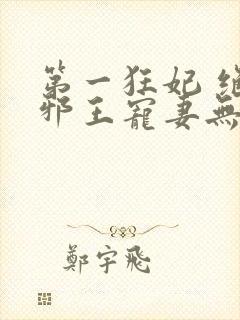 第一狂妃
邪王寵妻無
鄭宇飛